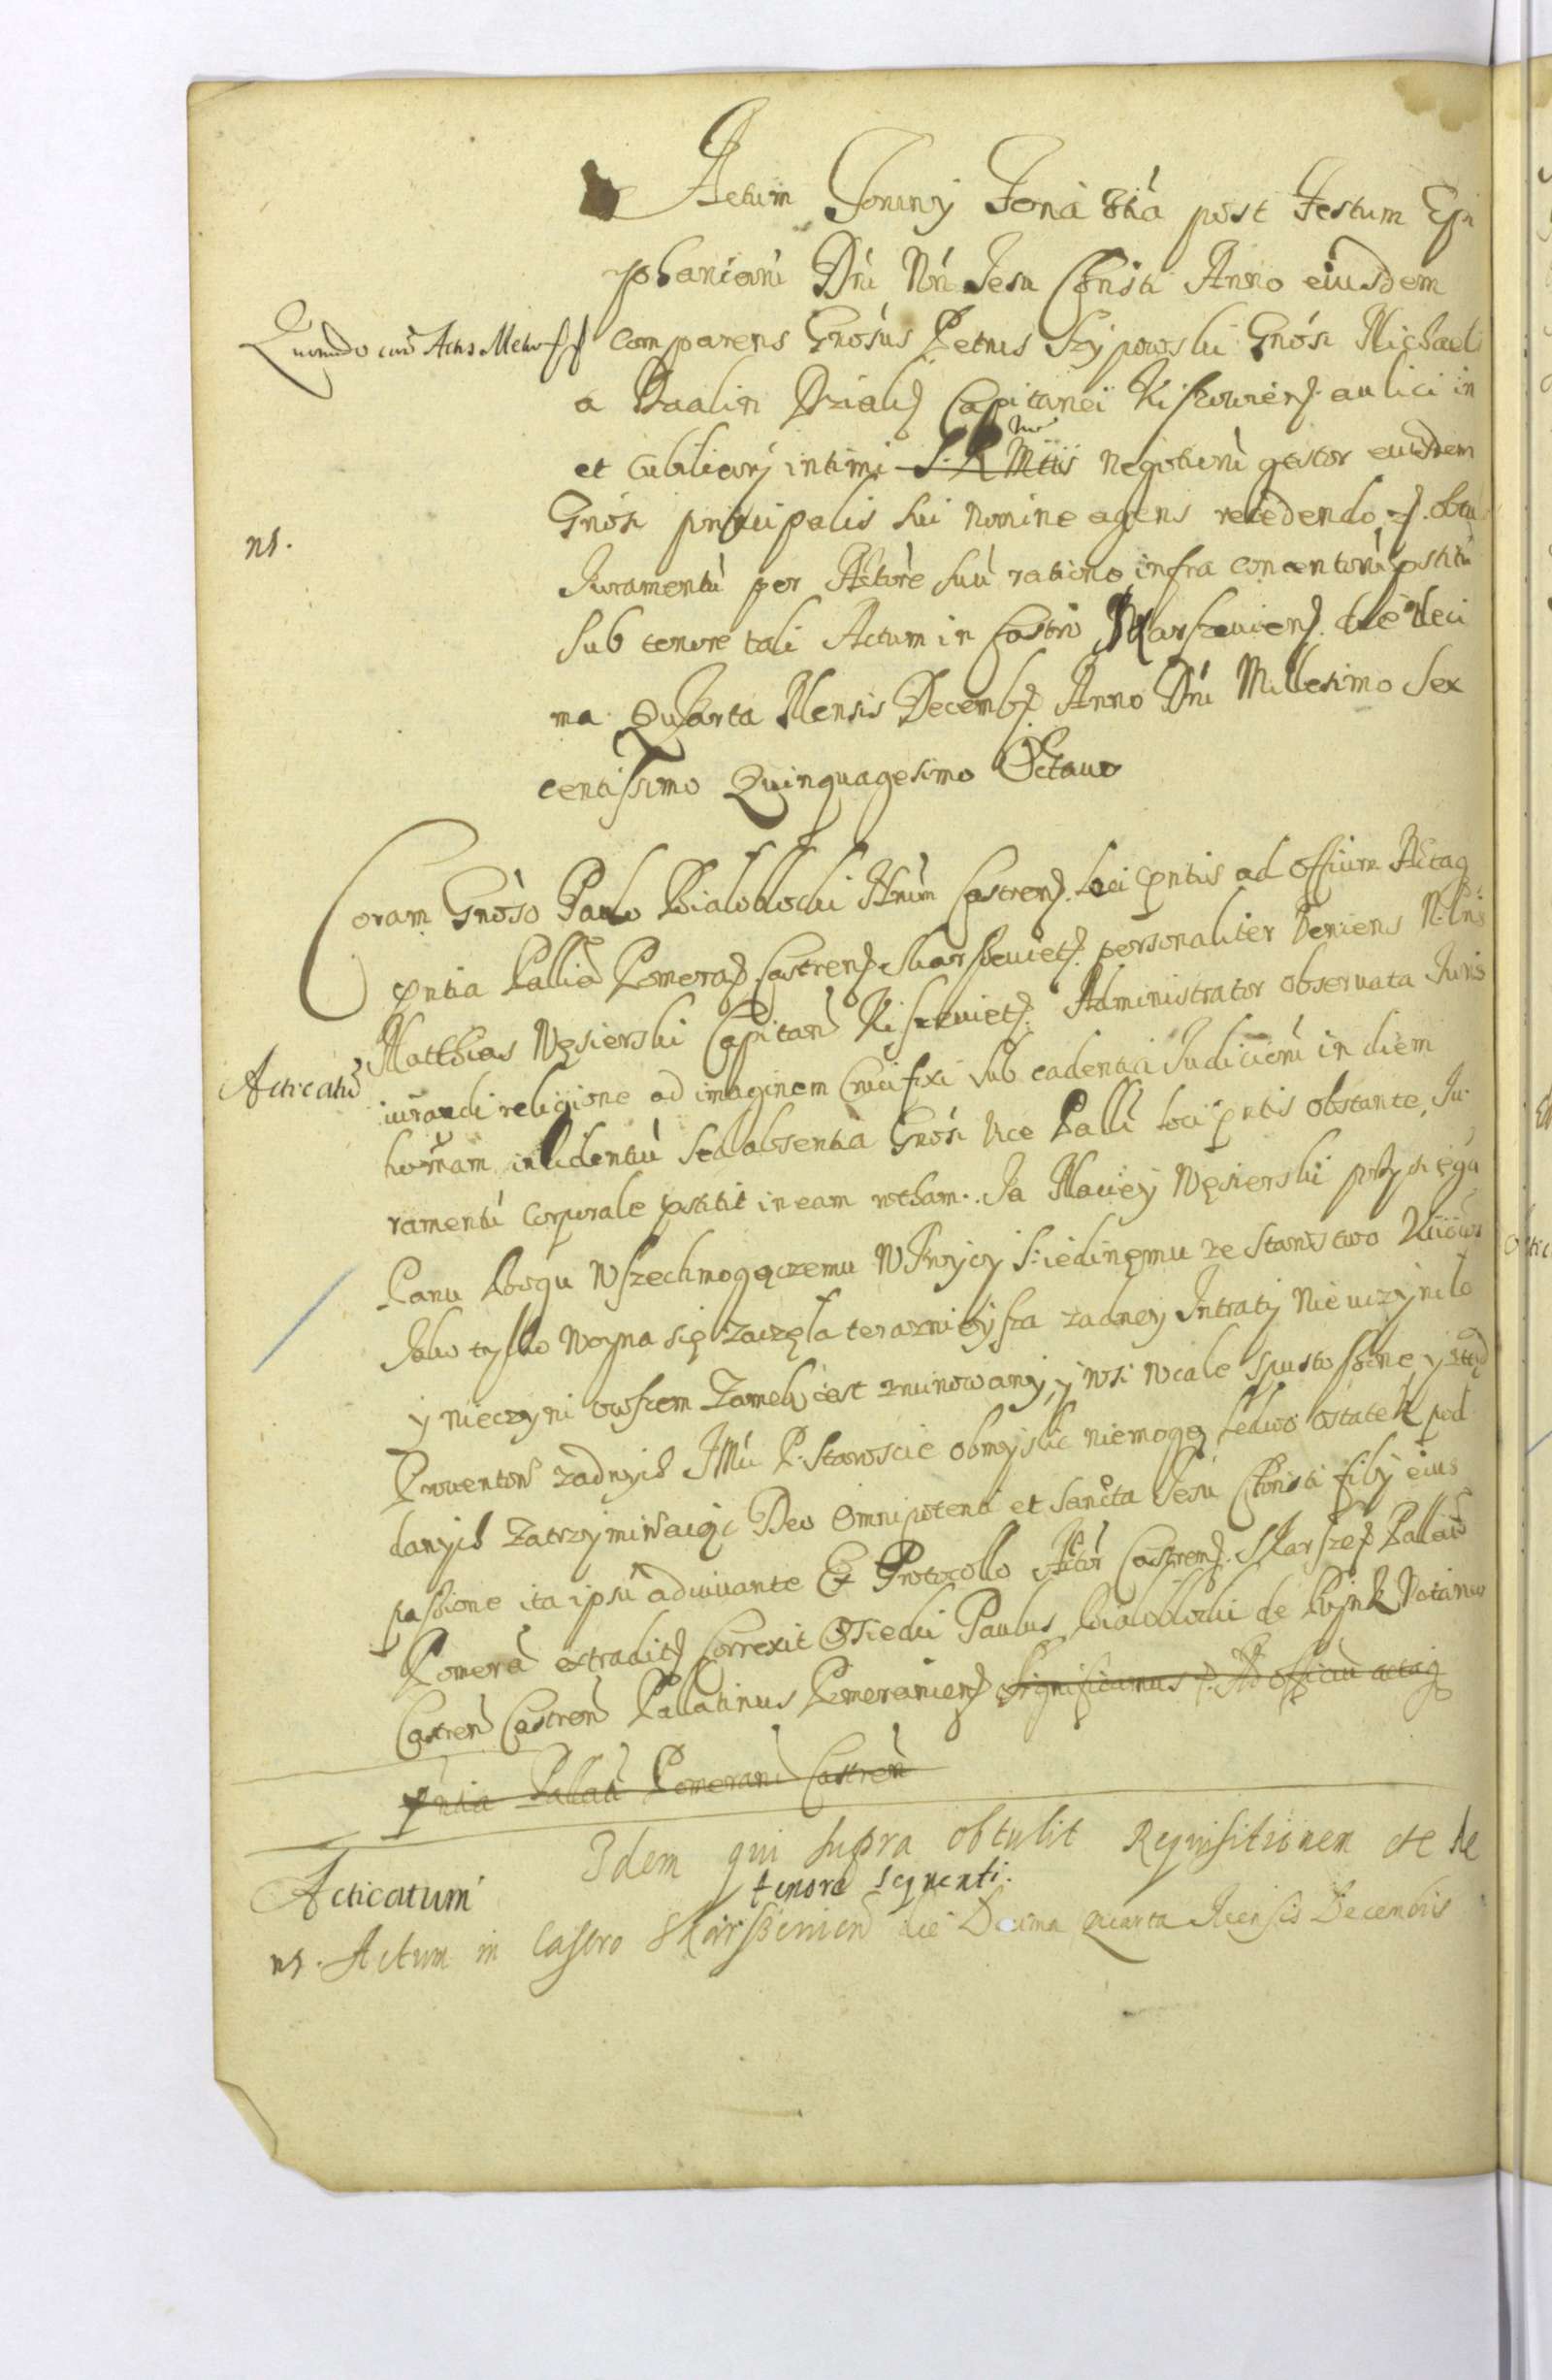 Actum Joniny Feria 6ta post Festum Epi
phaniarũ Dni Nri Jesu Christi Anno eiusdem
comparens Gnosus Petrus Szyposki Gnosi Michaeli
a Działin Działi Capitanei Kiszewień aulici in
et Cubiliarij intimi S: R. Mttis Negotiorũ gestor eiusdem
Gnosi principalis sui nomine agens recedendo obtu
ns.
Juramentũ per Actorẽ suũ ratione infra contentorũ pstitũ
sub tenore tali Actum in Castro Skarszewień die deci
ma Quarta Mensis Decemb Anno Dni Millesimo Sex
centissimo Quinquagesimo Octavo
Coram Gnoso Paulo Białobłocki Castreń loci pntis ad offium Actaq
pntia Pallã Pomerań Castreń Skarszewień personaliter Veniens
Matthias Węsierski Capitań Kiszewień Administrator observata Juris
Acticatũ
iurandi religione ad imaginem Crucifixi sub cadentia Judiciorũ in diem
incidentiũ sed absentia Gnosi Vice Palli loci pntis obstante, Ju
ramentũ corporale pstitit in eam rotham. Ja Maciey Węsierski przysięgą
Panu Bogu Wszechmogączemu W Troycy S: iedinęmu ze Starostwo
Jako tylko Woyna się zaczęła teraznieysza zadney Intraty Nie uczynilo
y nieczyni owszem Zamek iest zruinowany, y wsi wcale spustoszone, y ztąd
Prowentow zadnych JMci P: Staroscie obmyslic niemogę ledwo ostatek pod
danych zatrzymiwaiąc Deo Omnipotenti et Sancta Jesu Christi filij eius
passione ita ipsũ adiuuante Ex Protocollo Actor Castreń Skarszew Pallat
Pomera extradit Correxit Osiecki Paulus Białobłocki de Notarius
Castreń Castreń Pallatinus Pomeranień significamus Ad officiũ actaq
pntia Pallatũ Pomerań Castreń
Idem qui supra obtulit Requisitionem de
Acticatum tenore sequenti.
ns. Actum in Castro Skarszewień die Decima quarta Mensis Decembris